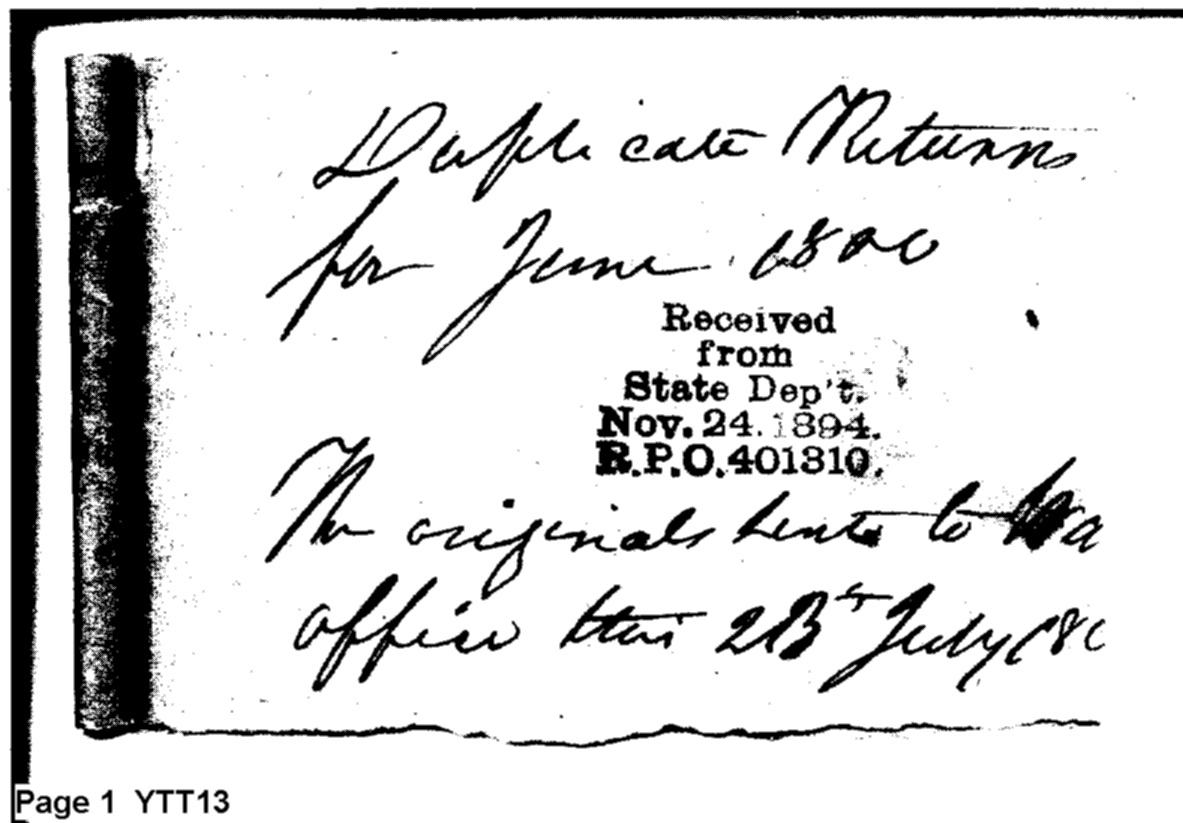 Duplicate Returns
for June 1800
Received
from
State Dep't.
Nov. 24. 1894.
R.P.O. 401310.
The originals sent to Wa
office this 25th July 180